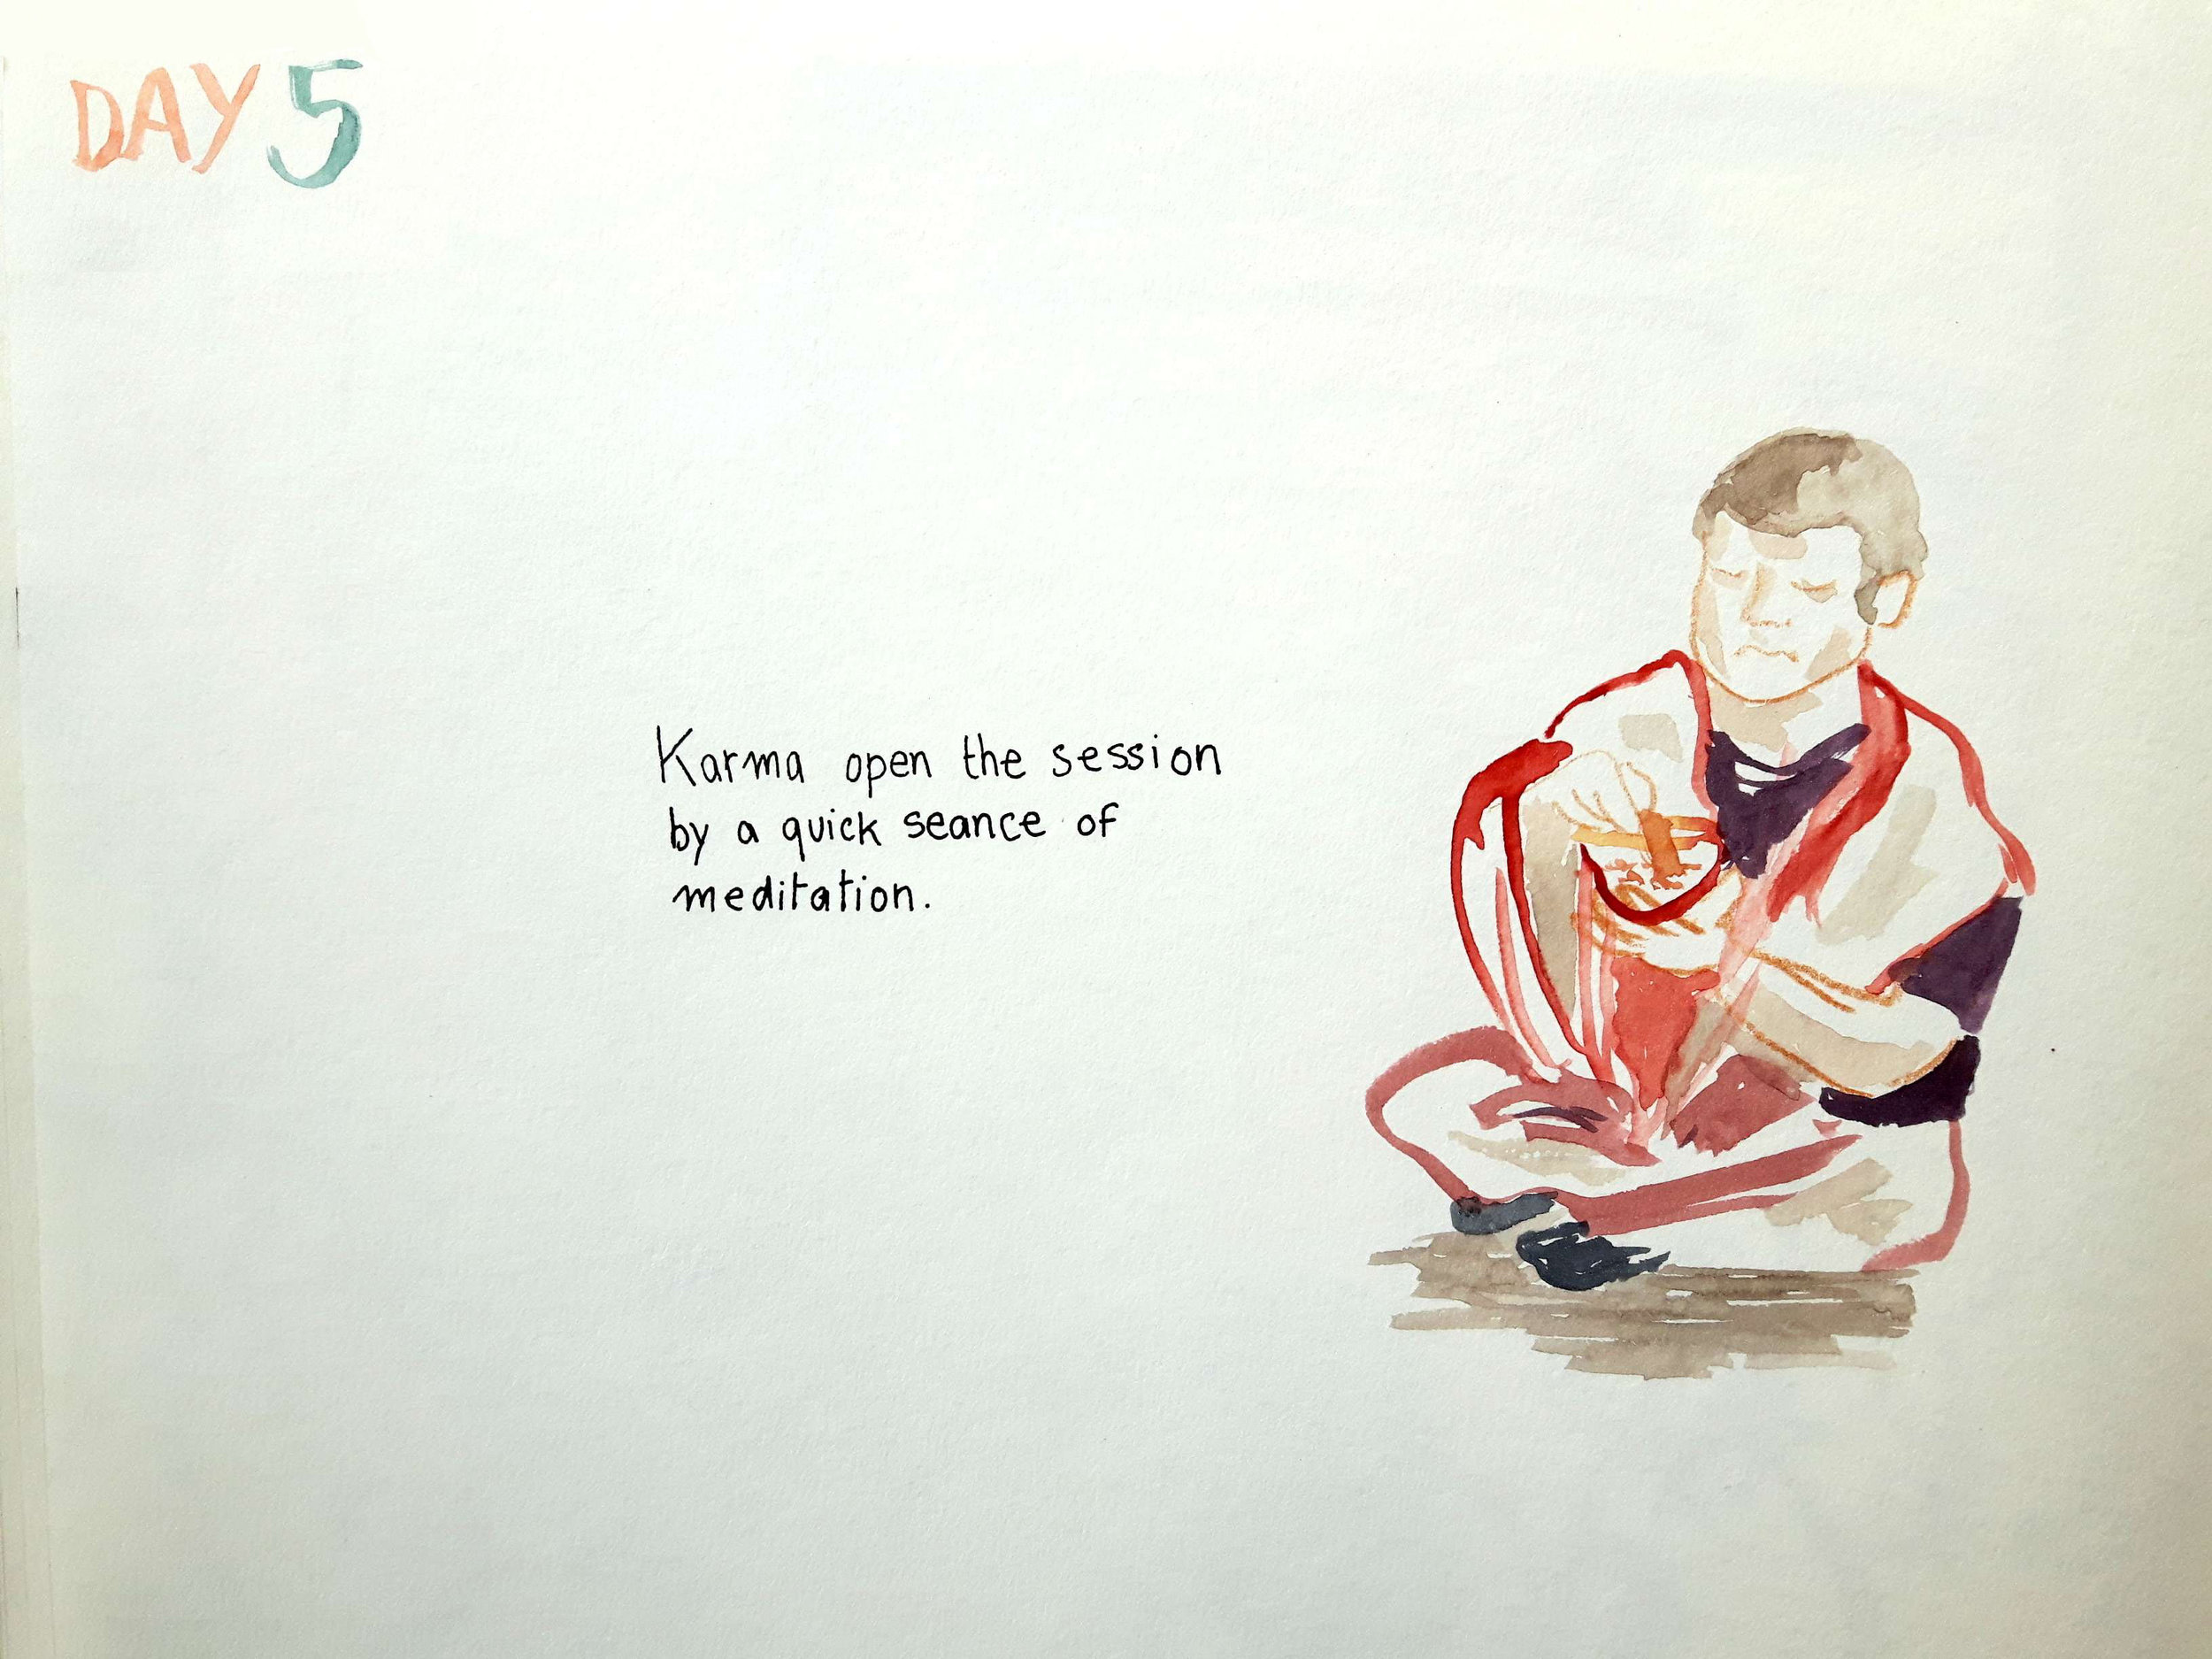 DAY 5
Karma open the session
by a quick seance of
meditation.